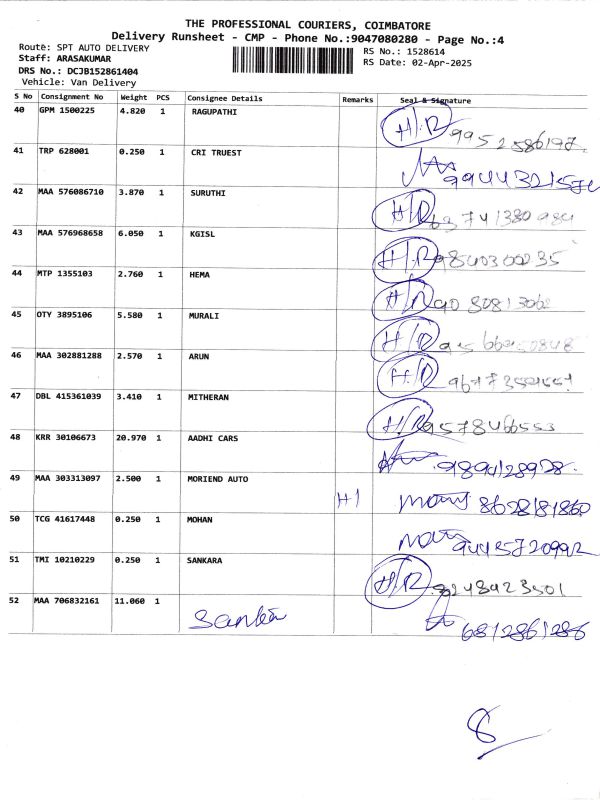 THE PROFESSIONAL COURIERS, COIMBATORE
Delivery Runsheet - CMP - Phone No.:9047080280 - Page No.:4
Route: SPT AUTO DELIVERY
Staff: ARASAKUMAR
DRS No.: DCJB152861404
Vehicle: Van Delivery
RS No.: 1528614
RS Date: 02-Apr-2025
S No Consignment No Weight PCS Consignee Details Remarks Seal & Signature
40 GPM 1500225 4.820 1 RAGUPATHI H/R
41 TRP 628001 0.250 1 CRI TRUEST
42 MAA 576086710 3.870 1 SURUTHI H/R
43 MAA 576968658 6.050 1 KGISL H/R
44 MTP 1355103 2.760 1 HEMA H/R
45 OTY 3895106 5.580 1 MURALI H/R
46 MAA 302881288 2.570 1 ARUN H/R
47 DBL 415361039 3.410 1 MITHERAN H/R 9578466553
48 KRR 30106673 20.970 1 AADHI CARS 9894128928
49 MAA 303313097 2.500 1 MORIEND AUTO 8628181860
50 TCG 41617448 0.250 1 MOHAN
51 TMI 10210229 0.250 1 SANKARA H/R
52 MAA 706832161 11.060 1 6812861286
8